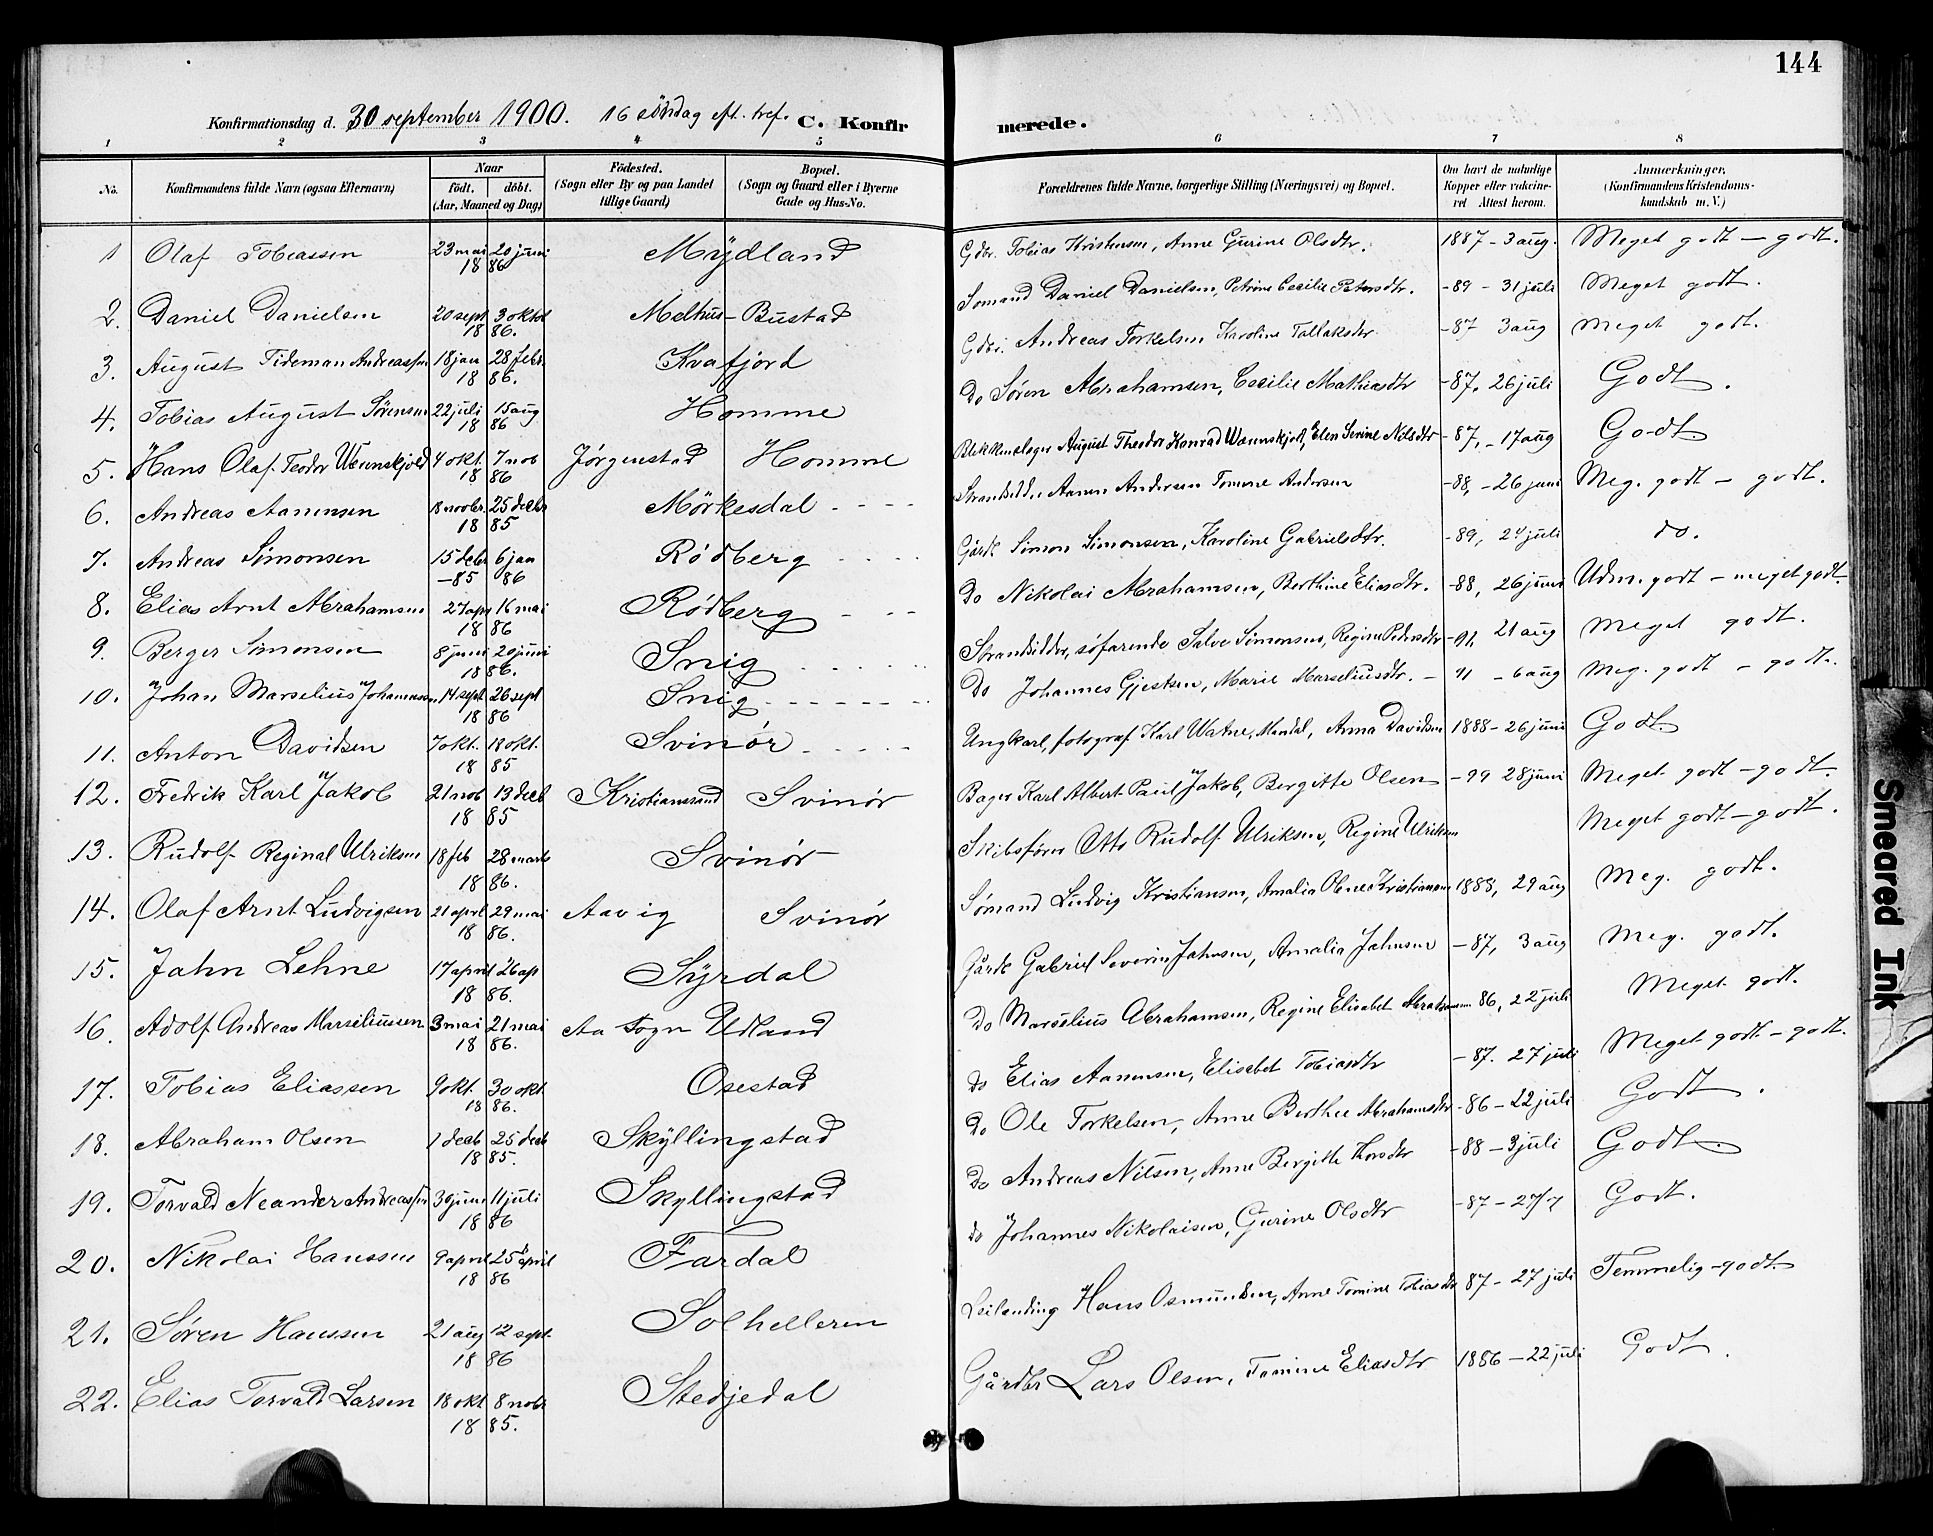 144
Konfirmationsdag d. 30 september 1900. 16 söndag eft. tref. C. Konfirmerede.
1 2 3 4 5 6 7 8
No. Konfirmandens fulde Navn (ogsaa Efternavn) Naar født. døbt. (Aar, Maaned og Dag) Födested. (Sogn eller By og paa Landet tillige Gaard) Bopæl. (Sogn og Gaard eller i Byerne Gade og Hus-No. Forældrenes fulde Navne, borgerlige Stilling (Næringsvei) og Bopæl. Om havt de naturlige Kopper eller vakcineret Attest herom. Anmærkninger, (Konfirmandens Kristendomskundskab m. V.)
1 Olaf Tobiassen 23 mai 20 juni 18 86 Mydland Gdbr. Tobias Kristensen, Anne Gurine Olsdtr. 1887 - 3 aug. Meget godt - godt.
2. Daniel Danielsen 20 sept 3 oktob 18 86. Melhus - Bustad Sømand Daniel Danielsen, Petrine Cecilie Petersdtr. -89 - 31 juli Meget godt.
3. August Tideman Andreassen 18 jan 28 febr. 18 86. Kvafjord Gdbr. Andreas Torkelsen Karoline Tallaksdtr -87 3 aug Meget godt.
4. Tobias August Sørensen 22 juli 15 aug 18 86 Homme Do Søren Abrahamsen, Cecilie Mathiasdtr -87. 26 juli Godt.
5. Hans Olaf Teodor Wennskjold 4 okt. 7 nob 18 86 Jørgenstad Homme Blikkenslager August Theodor Konrad Wennskjold, Elen Serine Nilsdtr -87, - 17 aug Godt
6. Andreas Aanensen 18 novbr. 25 decbr 18 85 Mörkesdal Strandsidder Aanen Andersen Tomine Andersen -88, - 26 juni Meg. godt - godt.
7. Andreas Simonsen 15 debr 6 jan -85 86 Rødberg Gårdb Simon Simonsen, Karoline Gabrielsdtr. -89, 24 juli do.
8. Elias Arnt Abrahamsen 27 apr 16 mai 18 86 Rødberg Do Nikolai Abrahamsen, Berthine Eliasdtr. -88, 26 juni Udm. godt - meget godt.
9. Berger Simonsen 8 juni 20 juni 18 86. Snig Strandsidder, søfarende Salve Simonsen, Regine Pedersdtr -91, 21 aug Meget godt.
10. Johan Marselius Johannessen 14 sept 26 sept 18 86 Snig Do Johannes Gjertsen, Marie Marseliusdtr. - 91 - 6 aug Meg. godt - godt.
11. Anton Davidsen 7 okt. 18 okt. 18 85 Svinør Ungkarl, fotograf Karl Watne, Mandal, Anna Davidsen 1888 - 26 juni Godt.
12. Fredrik Karl Jakob 21 nob 13 decb 18 85 Kristianssand Svinör Bager Karl Albert Paul Jakob, Bergitte Olsen - 99 28 juni Meget godt - godt.
13. Rudolf Reginal Ulriksen 18 feb 28 marts 18 86. Svinör Skibsfører Otto Rudolf Ulriksen, Regine Ulriksen Meget godt - godt.
14. Olaf Arnt Ludvigsen 21 aprl 29 mai 18 86. Aavig Svinör Sømand Ludvig Kristiansen, Amalia Olsnee Kristiansen 1888, 29 aug Meg. godt.
15. Jahn Lehne 17 april 26 ap 18 86. Syrdal Gårdb Gabriel Severin Jahnsen, Amalia Jahnsen - 87, 3 aug Meg. godt.
16. Adolf Andreas Marseliussen 3 mai 21 mai 18 86. Aa Sogn Udland Do Marselius Abrahamsen, Regine Elisabet Abrahamsen 86, 22 juli Meget godt.
17. Tobias Eliassen 9 okt. 30 okt. 18 86. Osestad do Elias Aanensen, Elisabet Tobiasdtr - 87. 27 juli Meget godt - godt.
18. Abraham Olsen 1 decb 25 decb 18 85. Skyllingstad Do Ole Torkelsen, Anne Berthee Abrahamsdtr - 86 - 22 juli Godt.
19. Torvald Neander Andreassen 30 juni 11 juli 18 86 Skyllingstad Do Andreas Nilsen, Anne Bergitte Korsdtr - 88 - 3 juli Godt.
20. Nikolai Hanssen 9 april 25 april 18 86 Fardal do Johannes Nikolaisen, Gurine Olsdtr - 87 - 27/7 Godt.
21. Søren Hanssen 21 aug 12 sept. 18 86 Solhelleren Leilending Hans Osmundsen, Anne Tomine Tobiasdtr 87 - 27 juli Temmelig - godt.
22. Elias Torvald Larsen 18 okt 8 nobr 18 85. Stedjedal Gårdbr Lars Olsen, Tomine Eliasdtr 1886 - 22 juli Godt.
Smeared Ink